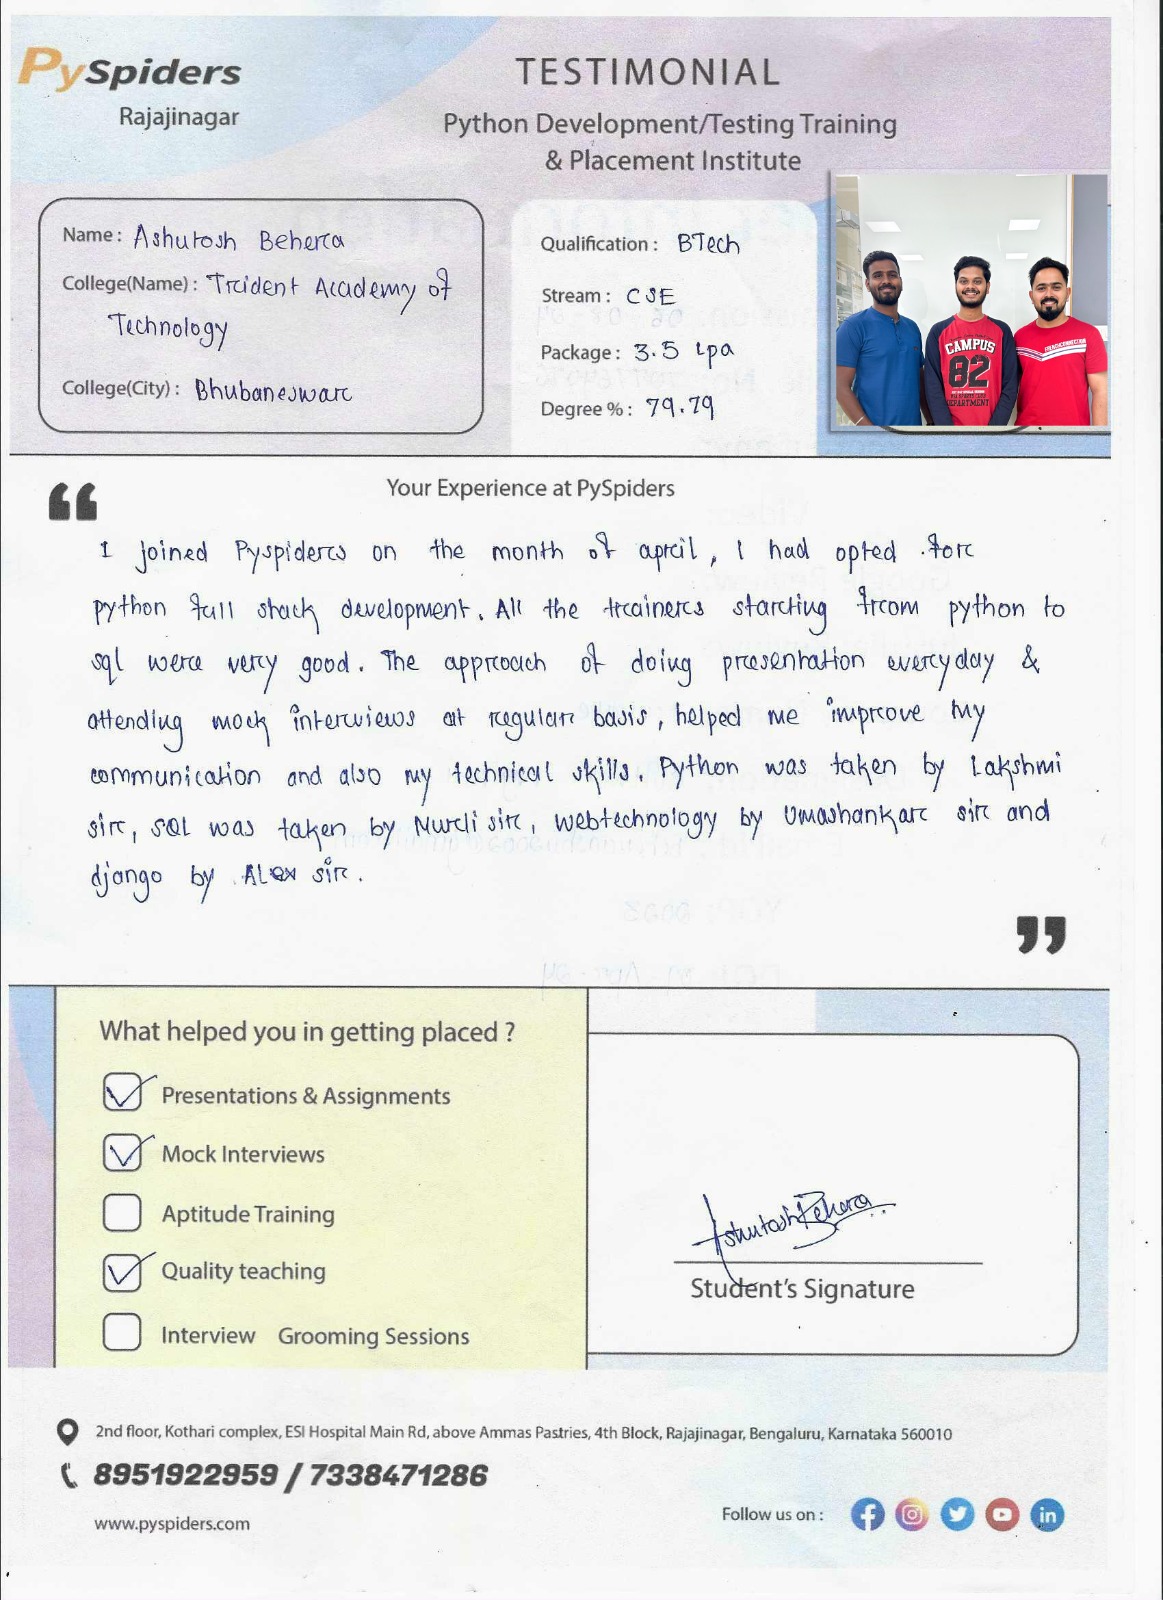 PySpiders
Rajajinagar
TESTIMONIAL
Python Development/Testing Training
& Placement Institute
Name : Ashutosh Behera
College(Name) : Trident Academy of
Technology
College(City) : Bhubaneswar
Qualification : BTech
Stream : CSE
Package : 3.5 Lpa
Degree % : 79.79
CAMPUS
82
DEPARTMENT
Your Experience at PySpiders
I joined Pyspiders on the month of april, I had opted for
python full stack development. All the trainers starting from python to
sql were very good. The approach of doing presentation everyday &
attending mock interviews at regular basis, helped me improve my
communication and also my technical skills. Python was taken by Lakshmi
sir, SQL was taken by Murli sir, webtechnology by Umashankar sir and
django by Alex sir.
What helped you in getting placed ?
Presentations & Assignments
Mock Interviews
Aptitude Training
Quality teaching
Interview Grooming Sessions
Ashutosh Behera
Student's Signature
2nd floor, Kothari complex, ESI Hospital Main Rd, above Ammas Pastries, 4th Block, Rajajinagar, Bengaluru, Karnataka 560010
8951922959 / 7338471286
www.pyspiders.com
Follow us on :